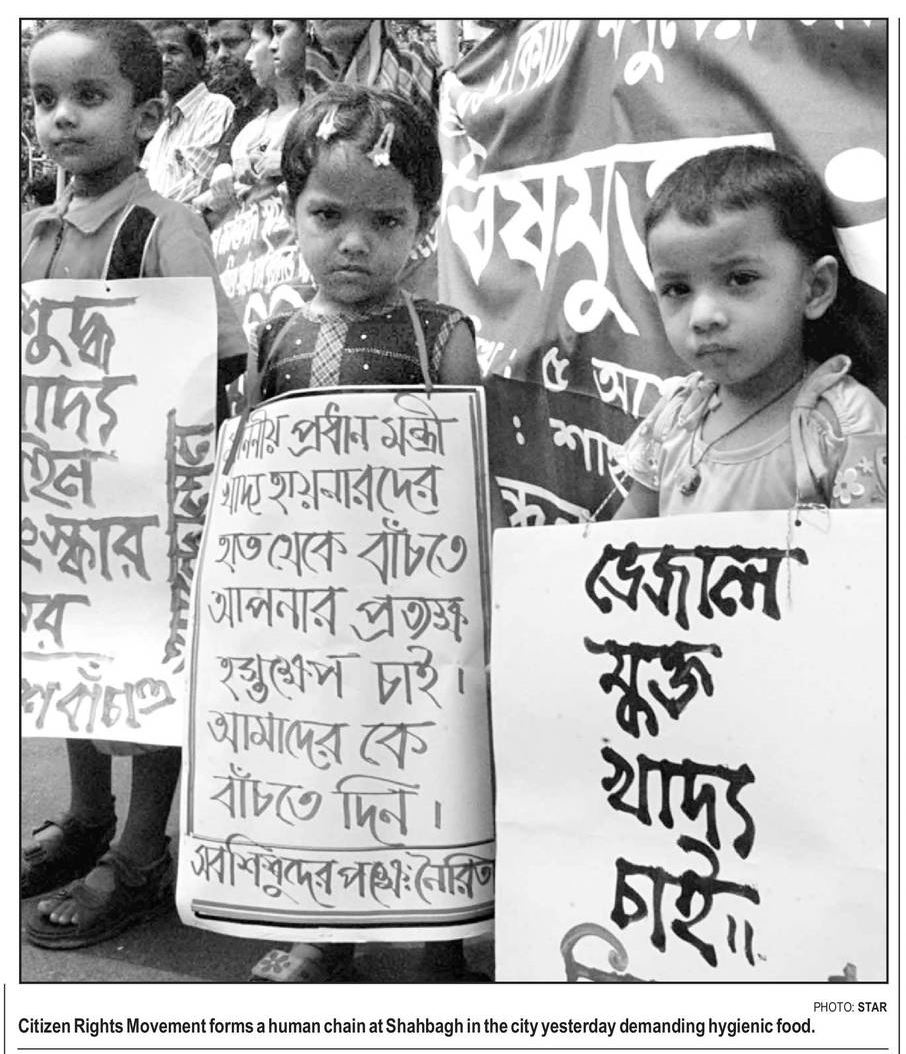 বিষমুক্ত
: ৫ আগ
: শাহ
শুদ্ধ
খাদ্য
স্কার
বাঁচাও
মাননীয় প্রধান মন্ত্রী
খাদ্য হায়নারদের
হাত থেকে বাঁচতে
আপনার প্রত্যক্ষ
হস্তক্ষেপ চাই।
আমাদের কে
বাঁচতে দিন।
সবশিশুদের পক্ষে: নৈরিত
ভেজাল
মুক্ত
খাদ্য
চাই॥
PHOTO: STAR
Citizen Rights Movement forms a human chain at Shahbagh in the city yesterday demanding hygienic food.